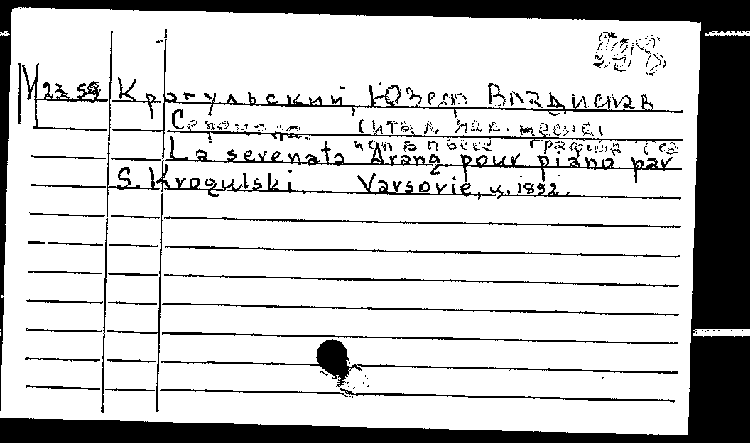 398
М 23 59 Крогульский, Юзеф Владислав
Серенада. (Итал. нар. песня)
La serenata Arang. pour piano par
S. Krogulski. Varsovie, ц. 1892.